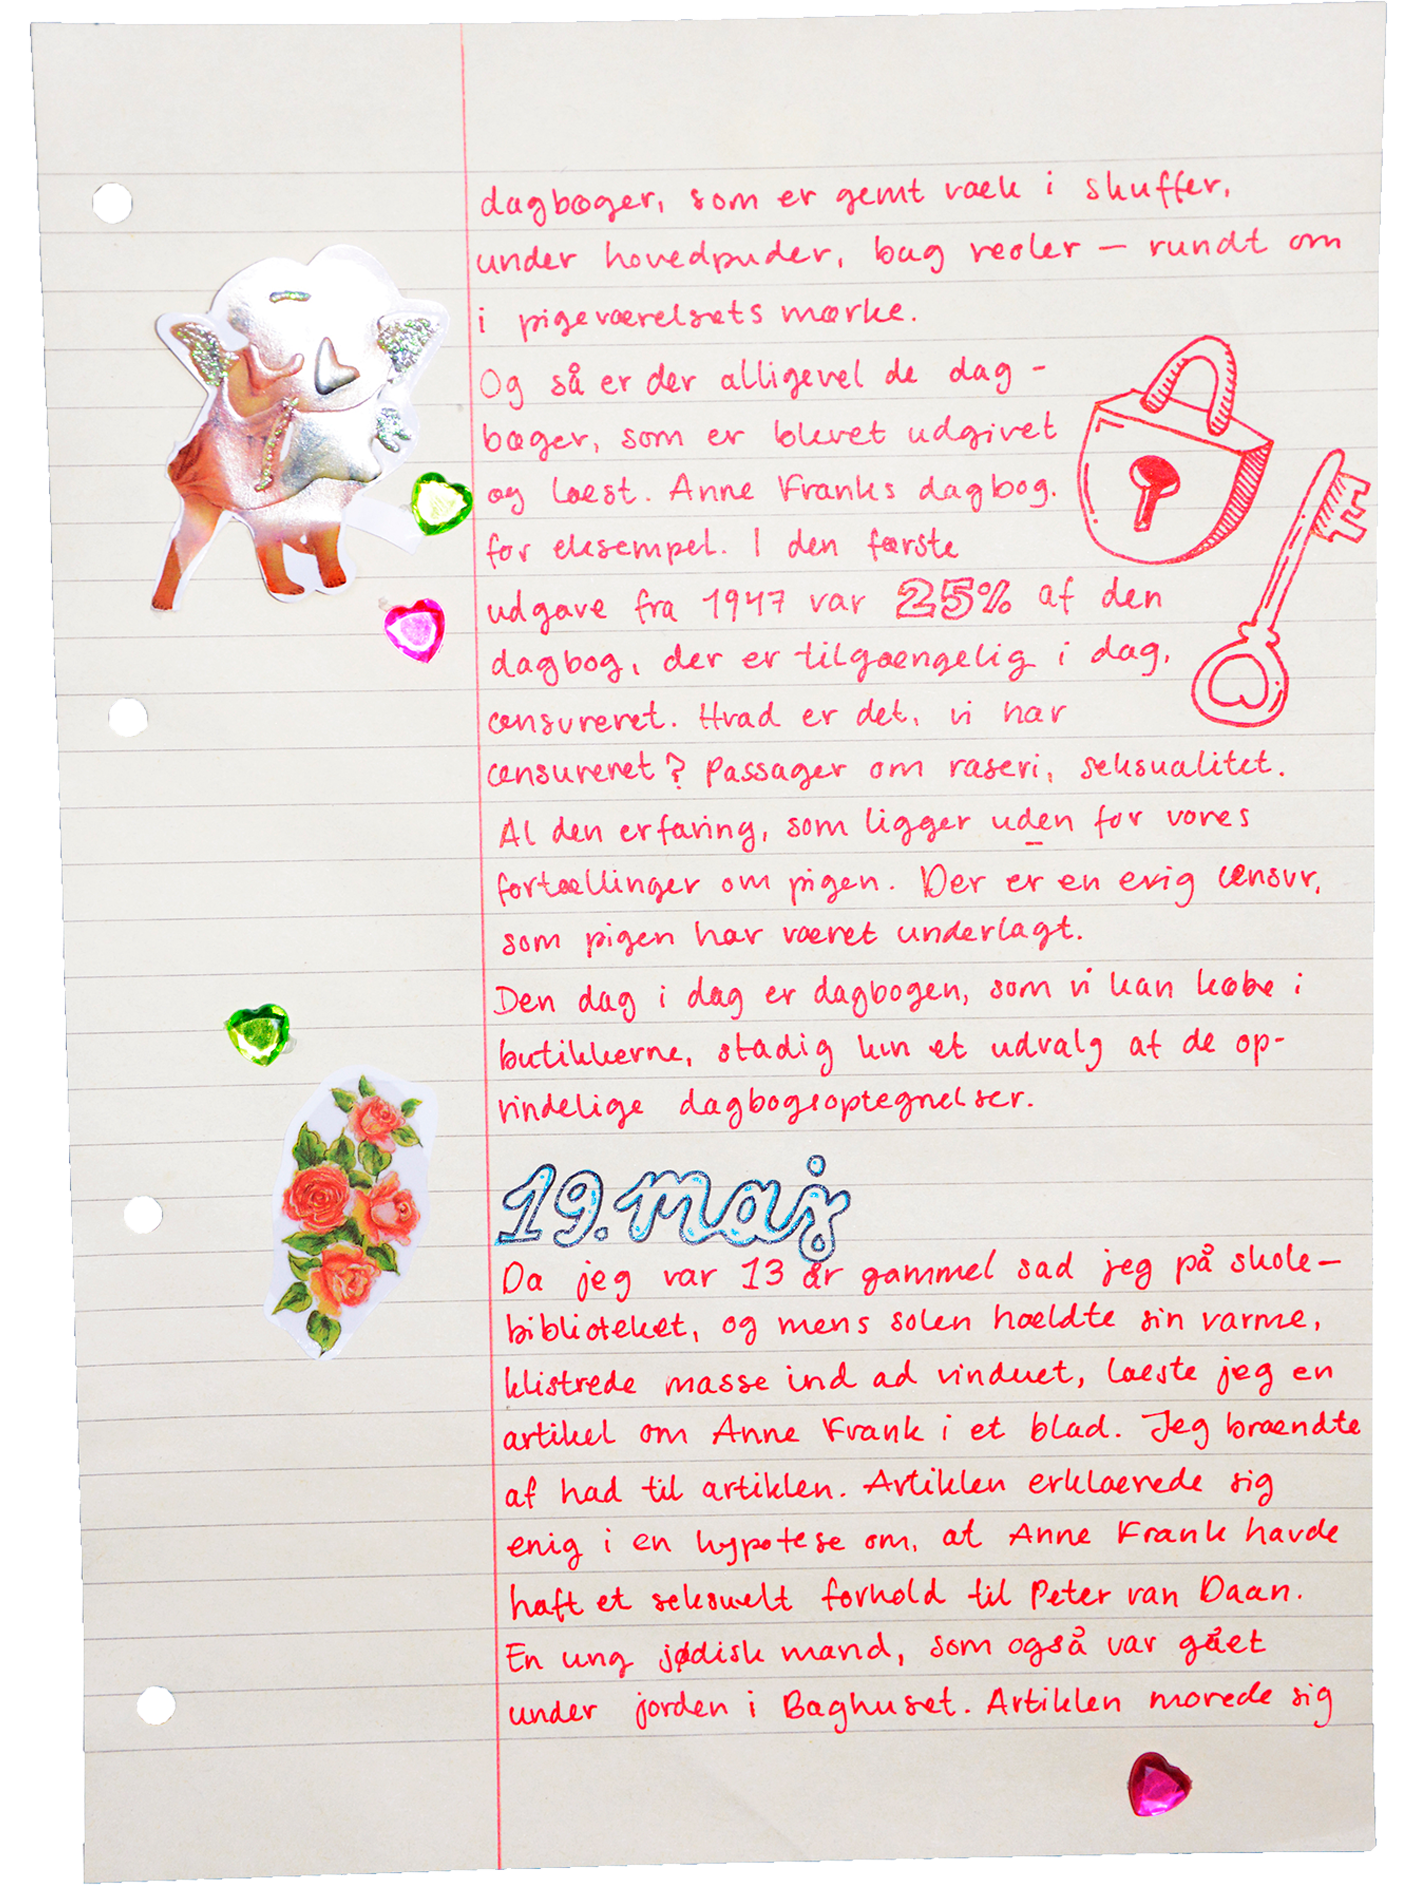 dagbøger, som er gemt væk i skuffer,
under hovedpuder, bag reoler — rundt om
i pigeværelsets mørke.
Og så er der alligevel de dag -
bøger, som er blevet udgivet
og læst. Anne Franks dagbog.
for eksempel. I den første
udgave fra 1947 var 25% af den
dagbog, der er tilgængelig i dag,
censureret. Hvad er det, vi har
censureret? Passager om raseri, seksualitet.
Al den erfaring, som ligger uden for vores
fortællinger om pigen. Der er en evig censur,
som pigen har været underlagt.
Den dag i dag er dagbogen, som vi kan købe i
butikkerne, stadig kun et udvalg af de op-
rindelige dagbogsoptegnelser.
19. maj
Da jeg var 13 år gammel sad jeg på skole—
biblioteket, og mens solen hældte sin varme,
klistrede masse ind ad vinduet, læste jeg en
artikel om Anne Frank i et blad. Jeg brændte
af had til artiklen. Artiklen erklærede sig
enig i en hypotese om, at Anne Frank havde
haft et seksuelt forhold til Peter van Daan.
En ung jødisk mand, som også var gået
under jorden i Baghuset. Artiklen morede sig